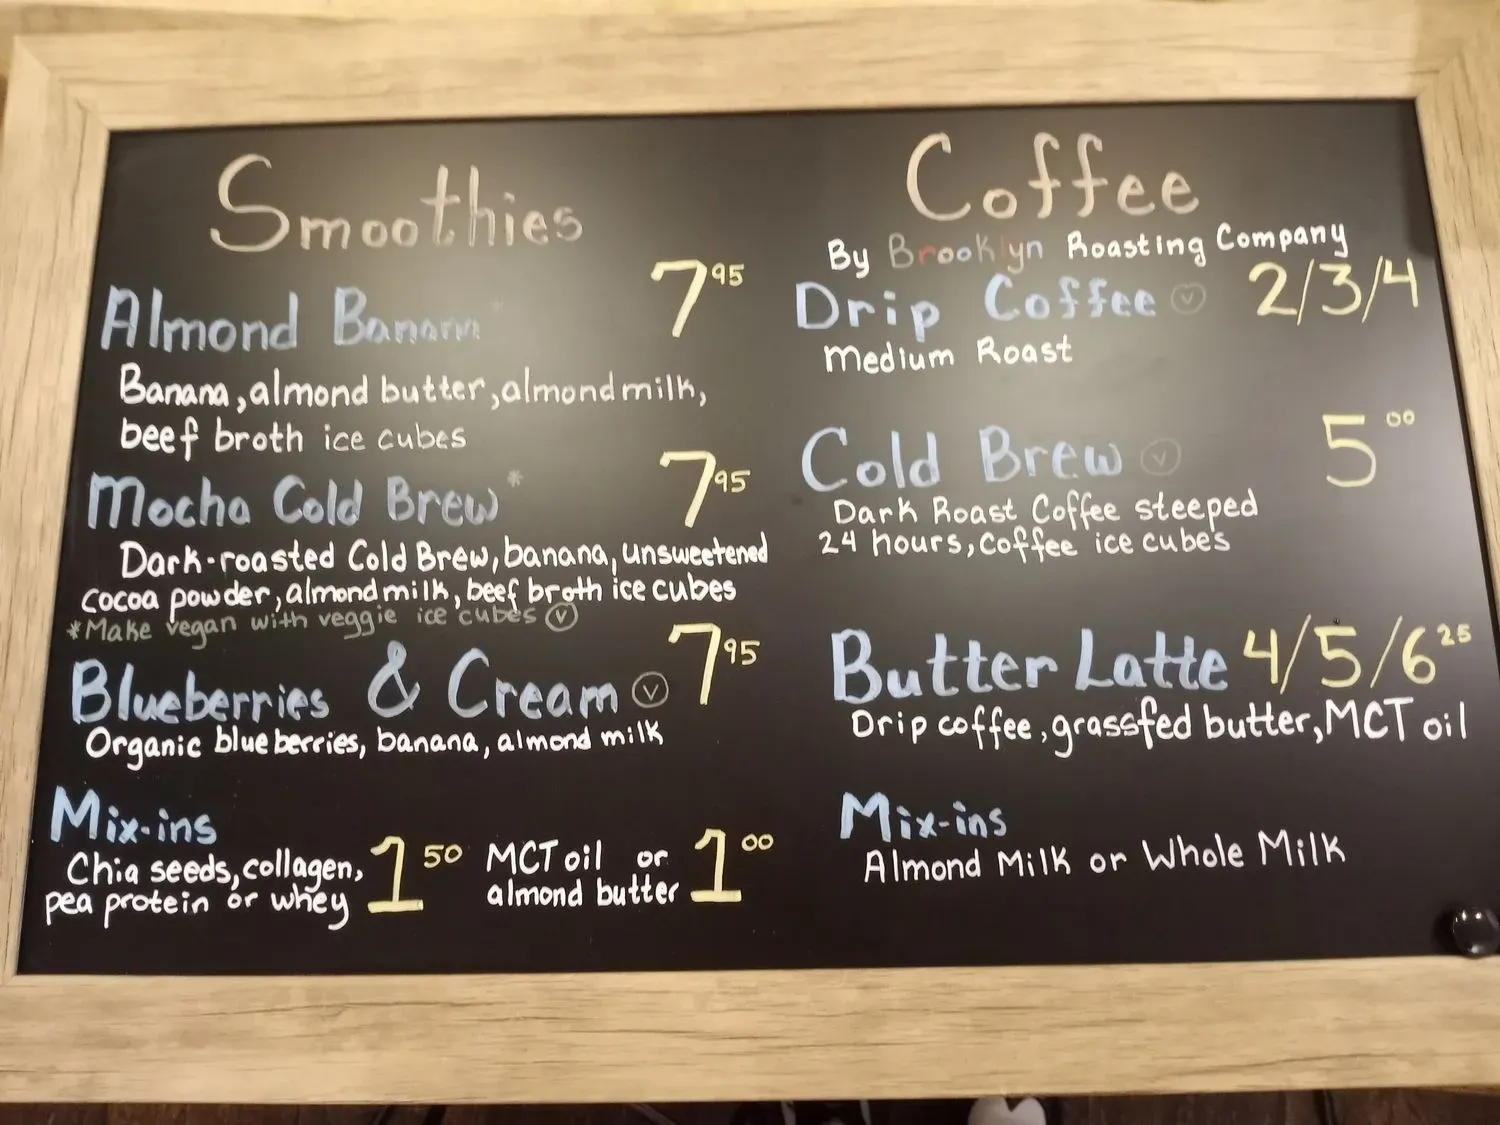 Smoothies
Almond Banana 7 95
Banana, almond butter, almond milk,
beef broth ice cubes
Mocha Cold Brew* 7 95
Dark-roasted Cold Brew, banana, unsweetened
cocoa powder, almond milk, beef broth ice cubes
*Make vegan with veggie ice cubes V
Blueberries & Cream V 7 95
Organic blueberries, banana, almond milk
Mix-ins
Chia seeds, collagen,
pea protein or whey 1 50
MCT oil or
almond butter 1 00
Coffee
By Brooklyn Roasting Company
Drip Coffee V 2/3/4
Medium Roast
Cold Brew V 5 00
Dark Roast Coffee steeped
24 hours, coffee ice cubes
Butter Latte 4/5/6 25
Drip coffee, grassfed butter, MCT oil
Mix-ins
Almond Milk or Whole Milk